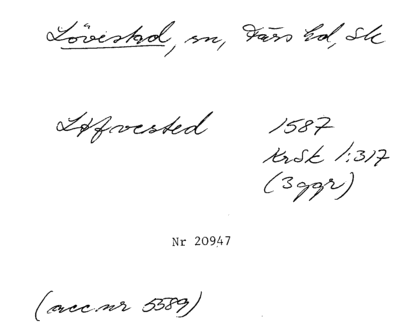 Lövestad, sn, Färs hd, Sk
Löfvested 1587
KrSk 1:317
(3 ggr)
Nr 20947
(acc.nr 5589)